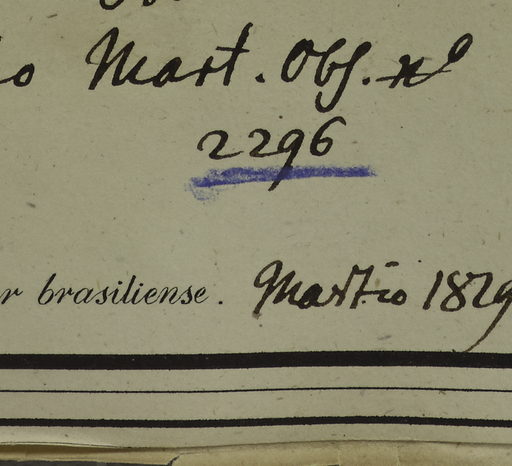 Mart. Obs. nº
2296
r brasiliense. Martio 1829